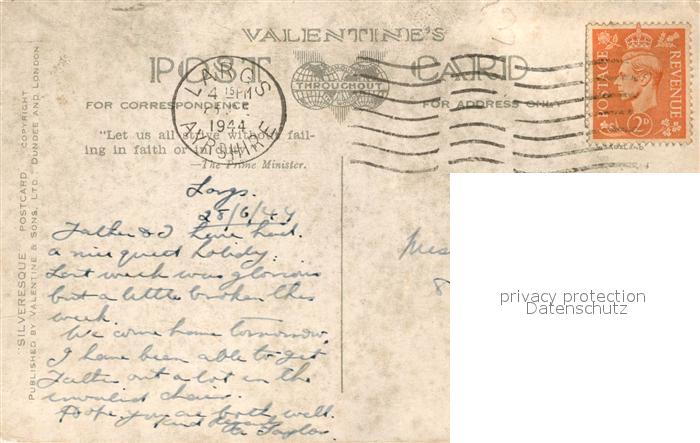 VALENTINE'S
POST CARD
THROUGHOUT
FOR CORRESPONDENCE
FOR ADDRESS ONLY
LARGS
4 15 PM
1944
AYRSHIRE
POSTAGE REVENUE
2D
"Let us all strive without fail-
ing in faith or in duty"
—The Prime Minister.
"SILVERESQUE" POSTCARD. COPYRIGHT
PUBLISHED BY VALENTINE & SONS, LTD., DUNDEE AND LONDON
Largs.
28/6/44
Father & I have had
a nice quiet holiday.
Last week was glorious
but a little broken this
week.
We come home tomorrow.
I have been able to get
Father out a lot in the
invalid chair.
Hope you are both well.
Kind
Taylor
8
privacy protection
Datenschutz